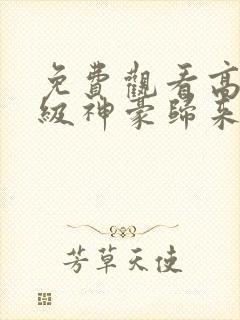 免費觀看高
級神豪歸來
芳草天使